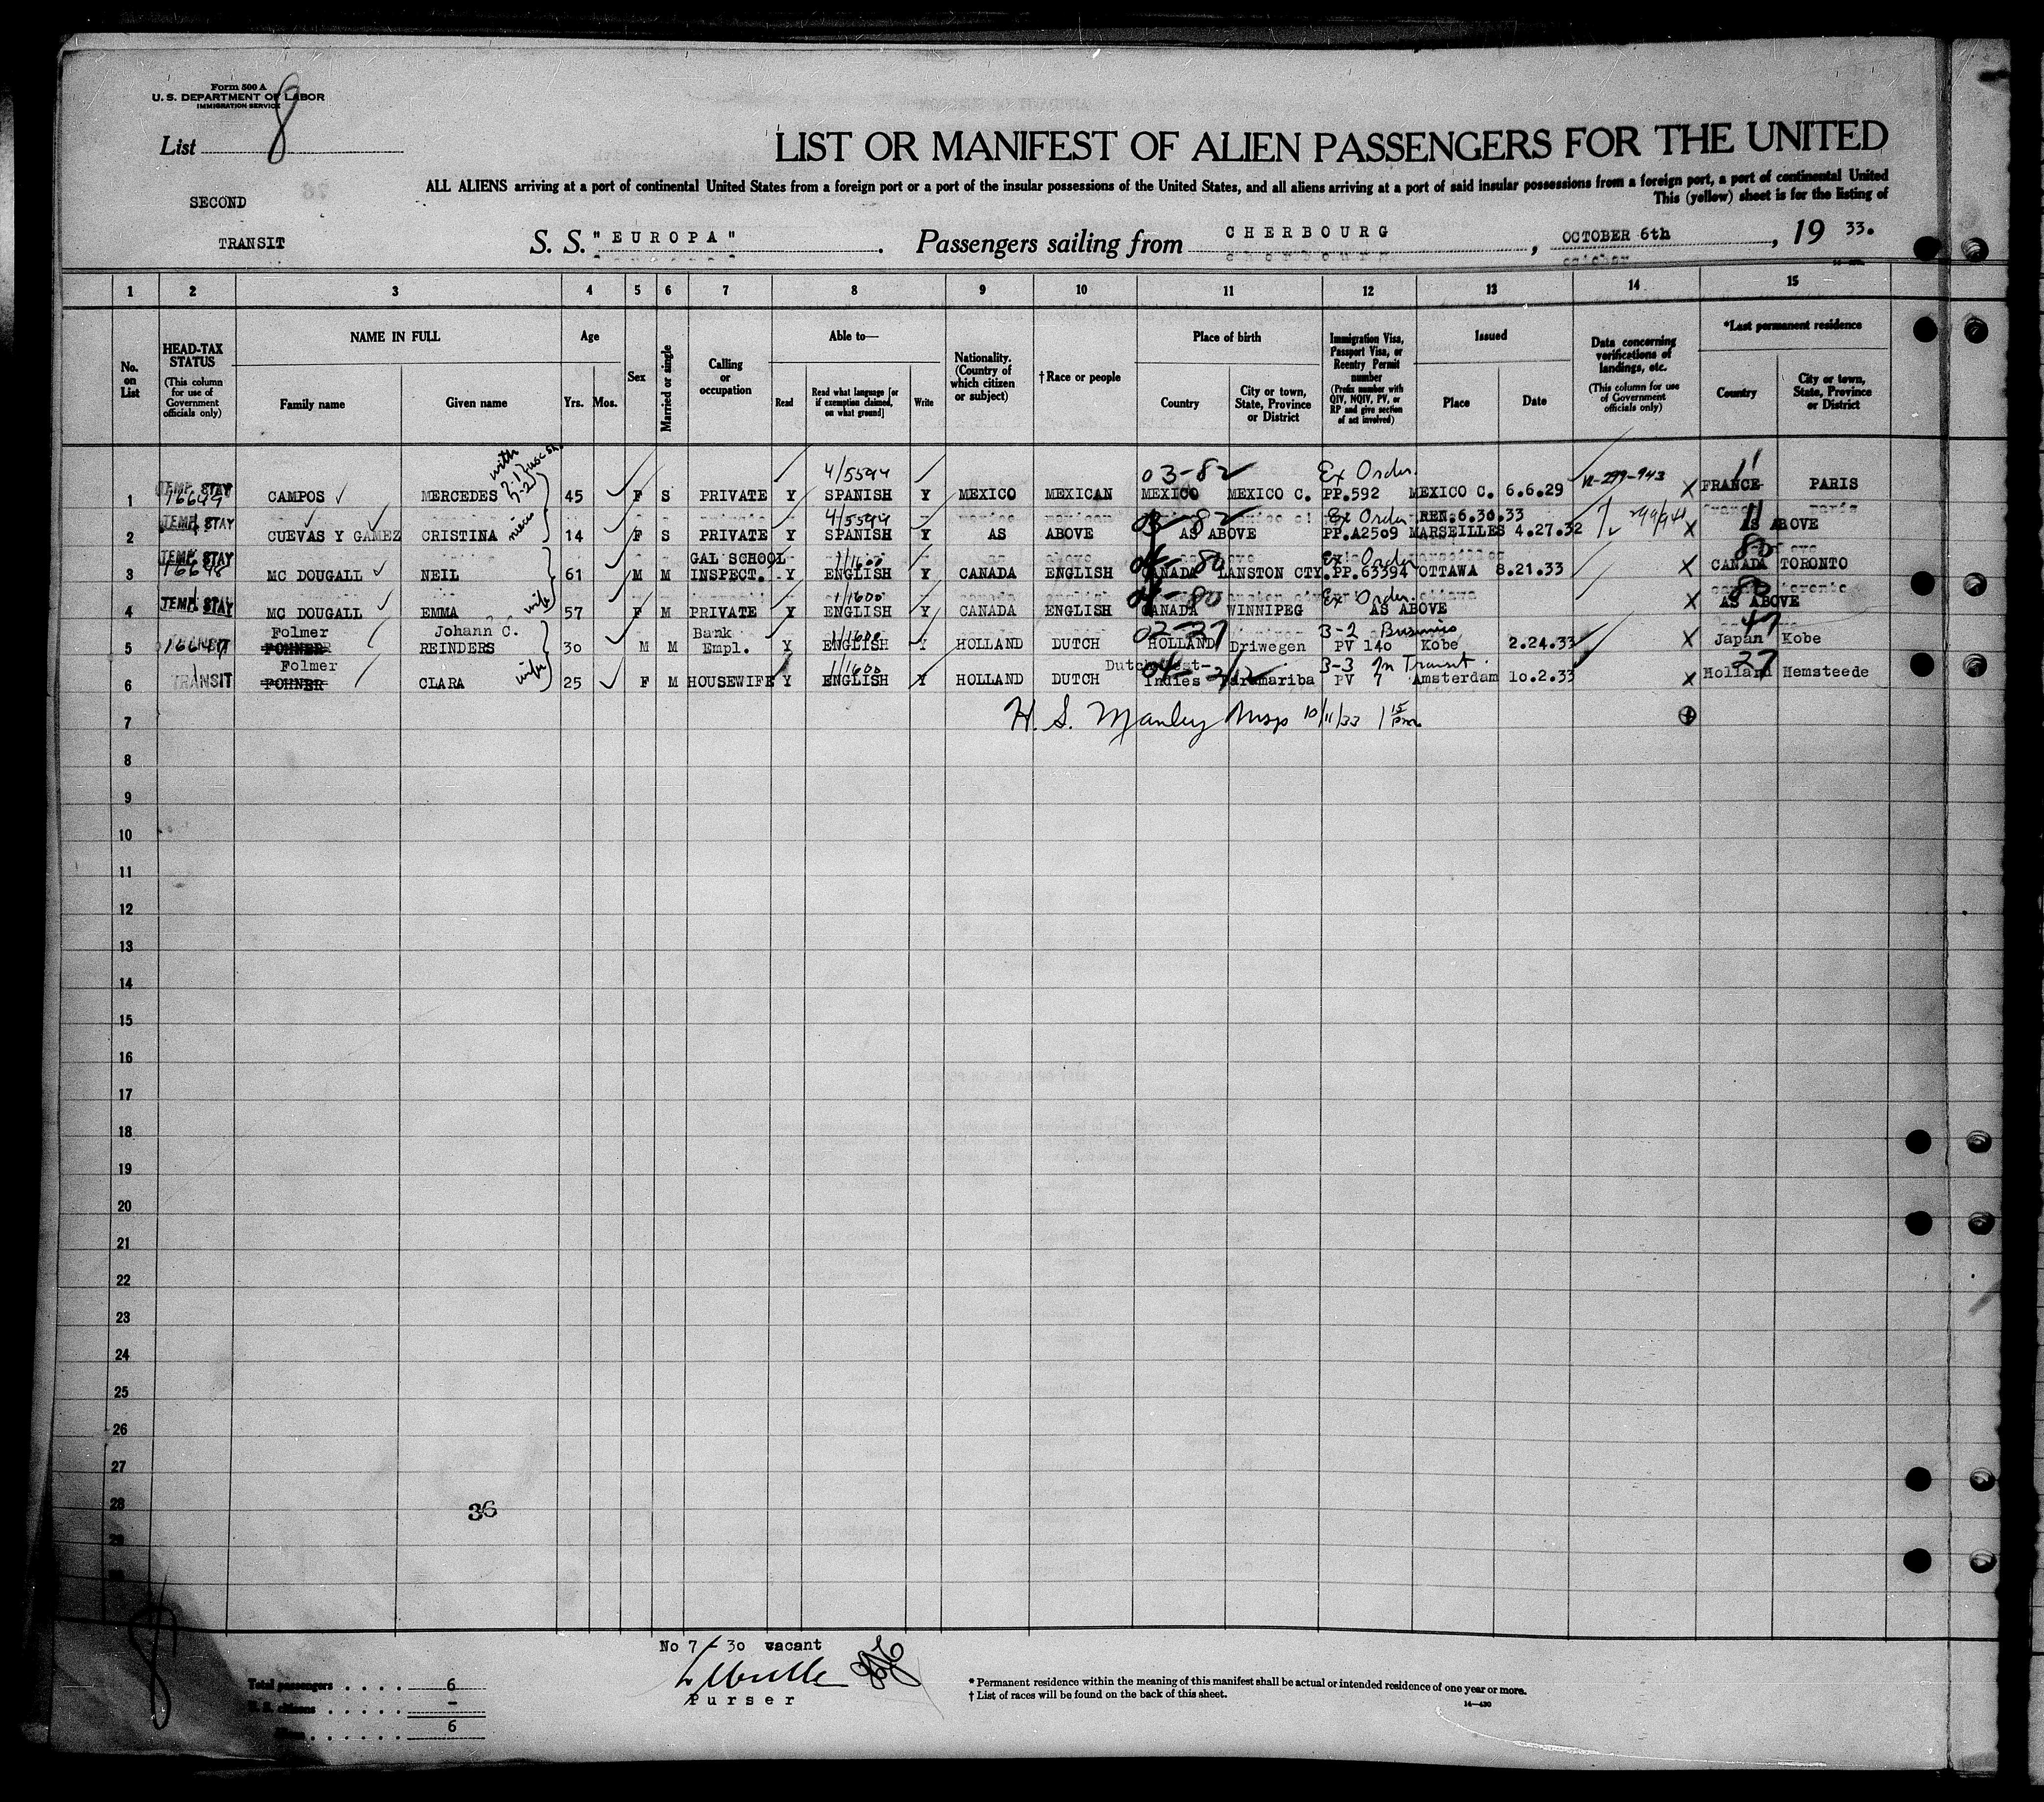 Form 500 A
U. S. DEPARTMENT OF LABOR
IMMIGRATION SERVICE
List 8
LIST OR MANIFEST OF ALIEN PASSENGERS FOR THE UNITED
ALL ALIENS arriving at a port of continental United States from a foreign port or a port of the insular possessions of the United States, and all aliens arriving at a port of said insular possessions from a foreign port, a port of continental United
This (yellow) sheet is for the listing of
SECOND
TRANSIT
S. S. "EUROPA". Passengers sailing from CHERBOURG, OCTOBER 6th, 19 33.
1 2 3 4 5 6 7 8 9 10 11 12 13 14 15
No. on List
HEAD-TAX STATUS (This column for use of Government officials only)
NAME IN FULL Family name Given name
Age Yrs. Mos.
Sex
Married or single
Calling or occupation
Able to— Read Read what language [or if exemption claimed, on what ground] Write
Nationality. (Country of which citizen or subject)
† Race or people
Place of birth Country City or town, State, Province or District
Immigration Visa, Passport Visa, or Reentry Permit number (Prefix number with QIV, NQIV, PV, or RP and give section of act involved)
Issued Place Date
Data concerning verifications of landings, etc. (This column for use of Government officials only)
*Last permanent residence Country City or town, State, Province or District
with
4/5594 03-82 Ex Order 11
1 TEMP. STAY 16649 CAMPOS MERCEDES 45 F S PRIVATE Y SPANISH Y MEXICO MEXICAN MEXICO MEXICO C. PP.592 MEXICO C. 6.6.29 299-943 X FRANCE PARIS
TEMP. STAY 4/5594 03-82 Ex Order REN.6.30.33 11
2 CUEVAS Y GAMEZ CRISTINA niece 14 F S PRIVATE Y SPANISH Y AS ABOVE AS ABOVE PP.A2509 MARSEILLES 4.27.32 X AS ABOVE
TEMP. STAY GAL SCHOOL 1/1600 04-80 Ex Order 80
3 16648 MC DOUGALL NEIL 61 M M INSPECT. Y ENGLISH Y CANADA ENGLISH CANADA LANSTON CTY. PP.63394 OTTAWA 8.21.33 X CANADA TORONTO
TEMP. STAY 1/1600 04-80 Ex Order 80
4 MC DOUGALL EMMA wife 57 F M PRIVATE Y ENGLISH Y CANADA ENGLISH CANADA WINNIPEG AS ABOVE X AS ABOVE
Folmer Johann C. Bank 1/1600 02-27 B-2 Business 47
5 16647 FOHNER REINDERS 30 M M Empl. Y ENGLISH Y HOLLAND DUTCH HOLLAND Driwegen PV 140 Kobe 2.24.33 X Japan Kobe
Folmer 1/1600 Dutch West- B-3 In Transit 27
6 TRANSIT FOHNER CLARA wife 25 F M HOUSEWIFE Y ENGLISH Y HOLLAND DUTCH Indies Paramariba PV 7 Amsterdam 10.2.33 X Holland Hemsteede
7 H. S. Manley Insp 10/11/33 1 15 pm
8
9
10
11
12
13
14
15
16
17
18
19
20
21
22
23
24
25
26
27
28
36
29
30
No 7 - 30 vacant
Purser
Total passengers . . . . 6
U. S. citizens . . . . . –
Aliens . . . . . . 6
* Permanent residence within the meaning of this manifest shall be actual or intended residence of one year or more.
† List of races will be found on the back of this sheet.
14—430